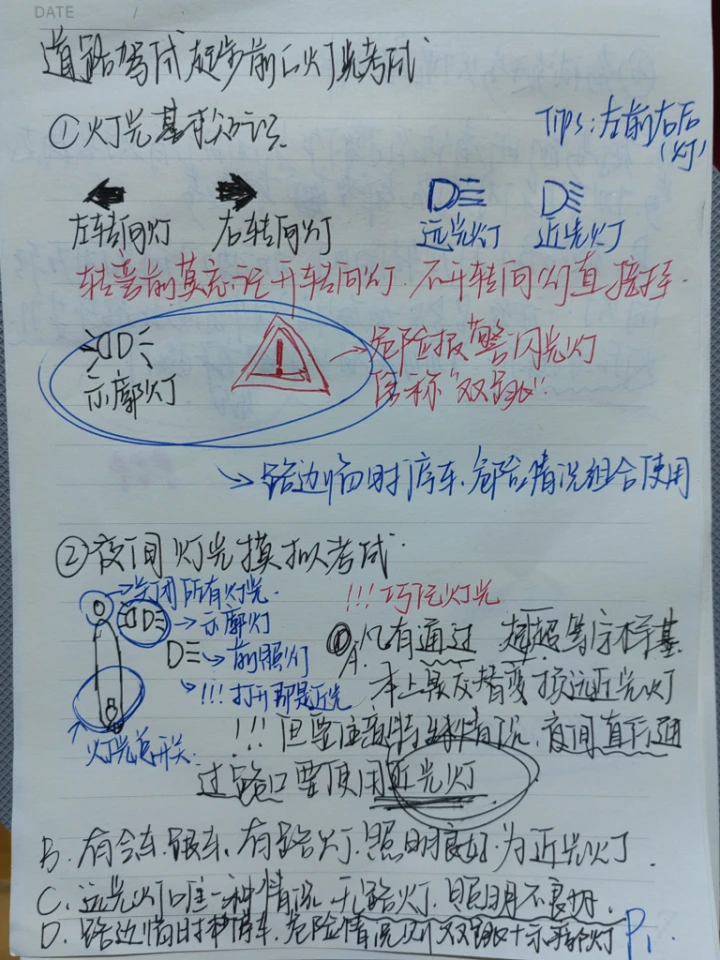 DATE /
道路驾试起步前的灯光考试
①灯光基本知识
Tips:左前右后
(灯)
左转向灯 右转向灯 远光灯 近光灯
转弯前莫忘记开转向灯.不开转向灯直接挂.
示廓灯
危险报警闪光灯
俗称"双跳".
路边临时停车、危险情况组合使用
②夜间灯光模拟考试.
关闭所有灯光.
示廓灯
前照灯
!!!打开那是近光
灯光总开关.
!!!巧记灯光
A.凡有通过 超越等字样基
本上是交替变换远近光灯
!!!但要注意特殊情况,夜间直行通
过路口要使用近光灯
B.有会车.跟车、有路灯.照明良好.为近光灯.
C.远光灯唯一种情况 无路灯.照明不良好.
D.路边临时停车.危险情况则双跳+示廓灯
P1